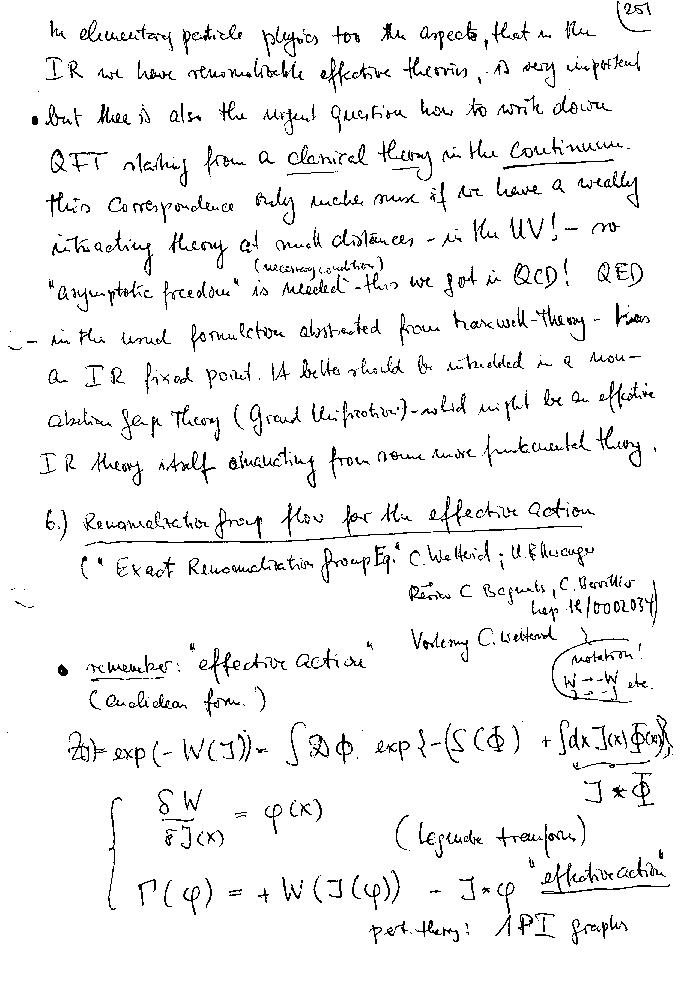 251
In elementary particle physics too the aspects, that in the
IR we have renormalizable effective theories, is very important
• but there is also the urgent question how to write down
QFT starting from a classical theory in the continuum.
This correspondence only makes sense if we have a weakly
interacting theory at small distances - in the UV! - so
(necessary condition)
"asymptotic freedom" is needed - this we got in QCD! QED
- in the usual formulation abstracted from Maxwell-Theory - has
an IR fixed point. It better should be imbedded in a non-
abelian gauge Theory (Grand Unification) - which might be an effective
IR theory itself emanating from some more fundamental theory.
6.) Renormalization group flow for the effective action
("Exact Renormalization Group Eq." C. Wetterich; U. Ellwanger
Review C. Bagnuls, C. Bervillier
hep-th/0002034)
Vorlesung C. Wetterich
notation!
W → -W etc.
J → -J
• remember: "effective action"
(Euclidean form.)
Z(J) = exp(-W(J)) = ∫ DΦ exp{-(S(Φ) + ∫dx J(x) Φ(x))}
J * Φ
δW/δJ(x) = φ(x)
(Legendre transform)
Γ(φ) = + W(J(φ)) - J*φ "effective action"
pert. theory: 1PI graphs